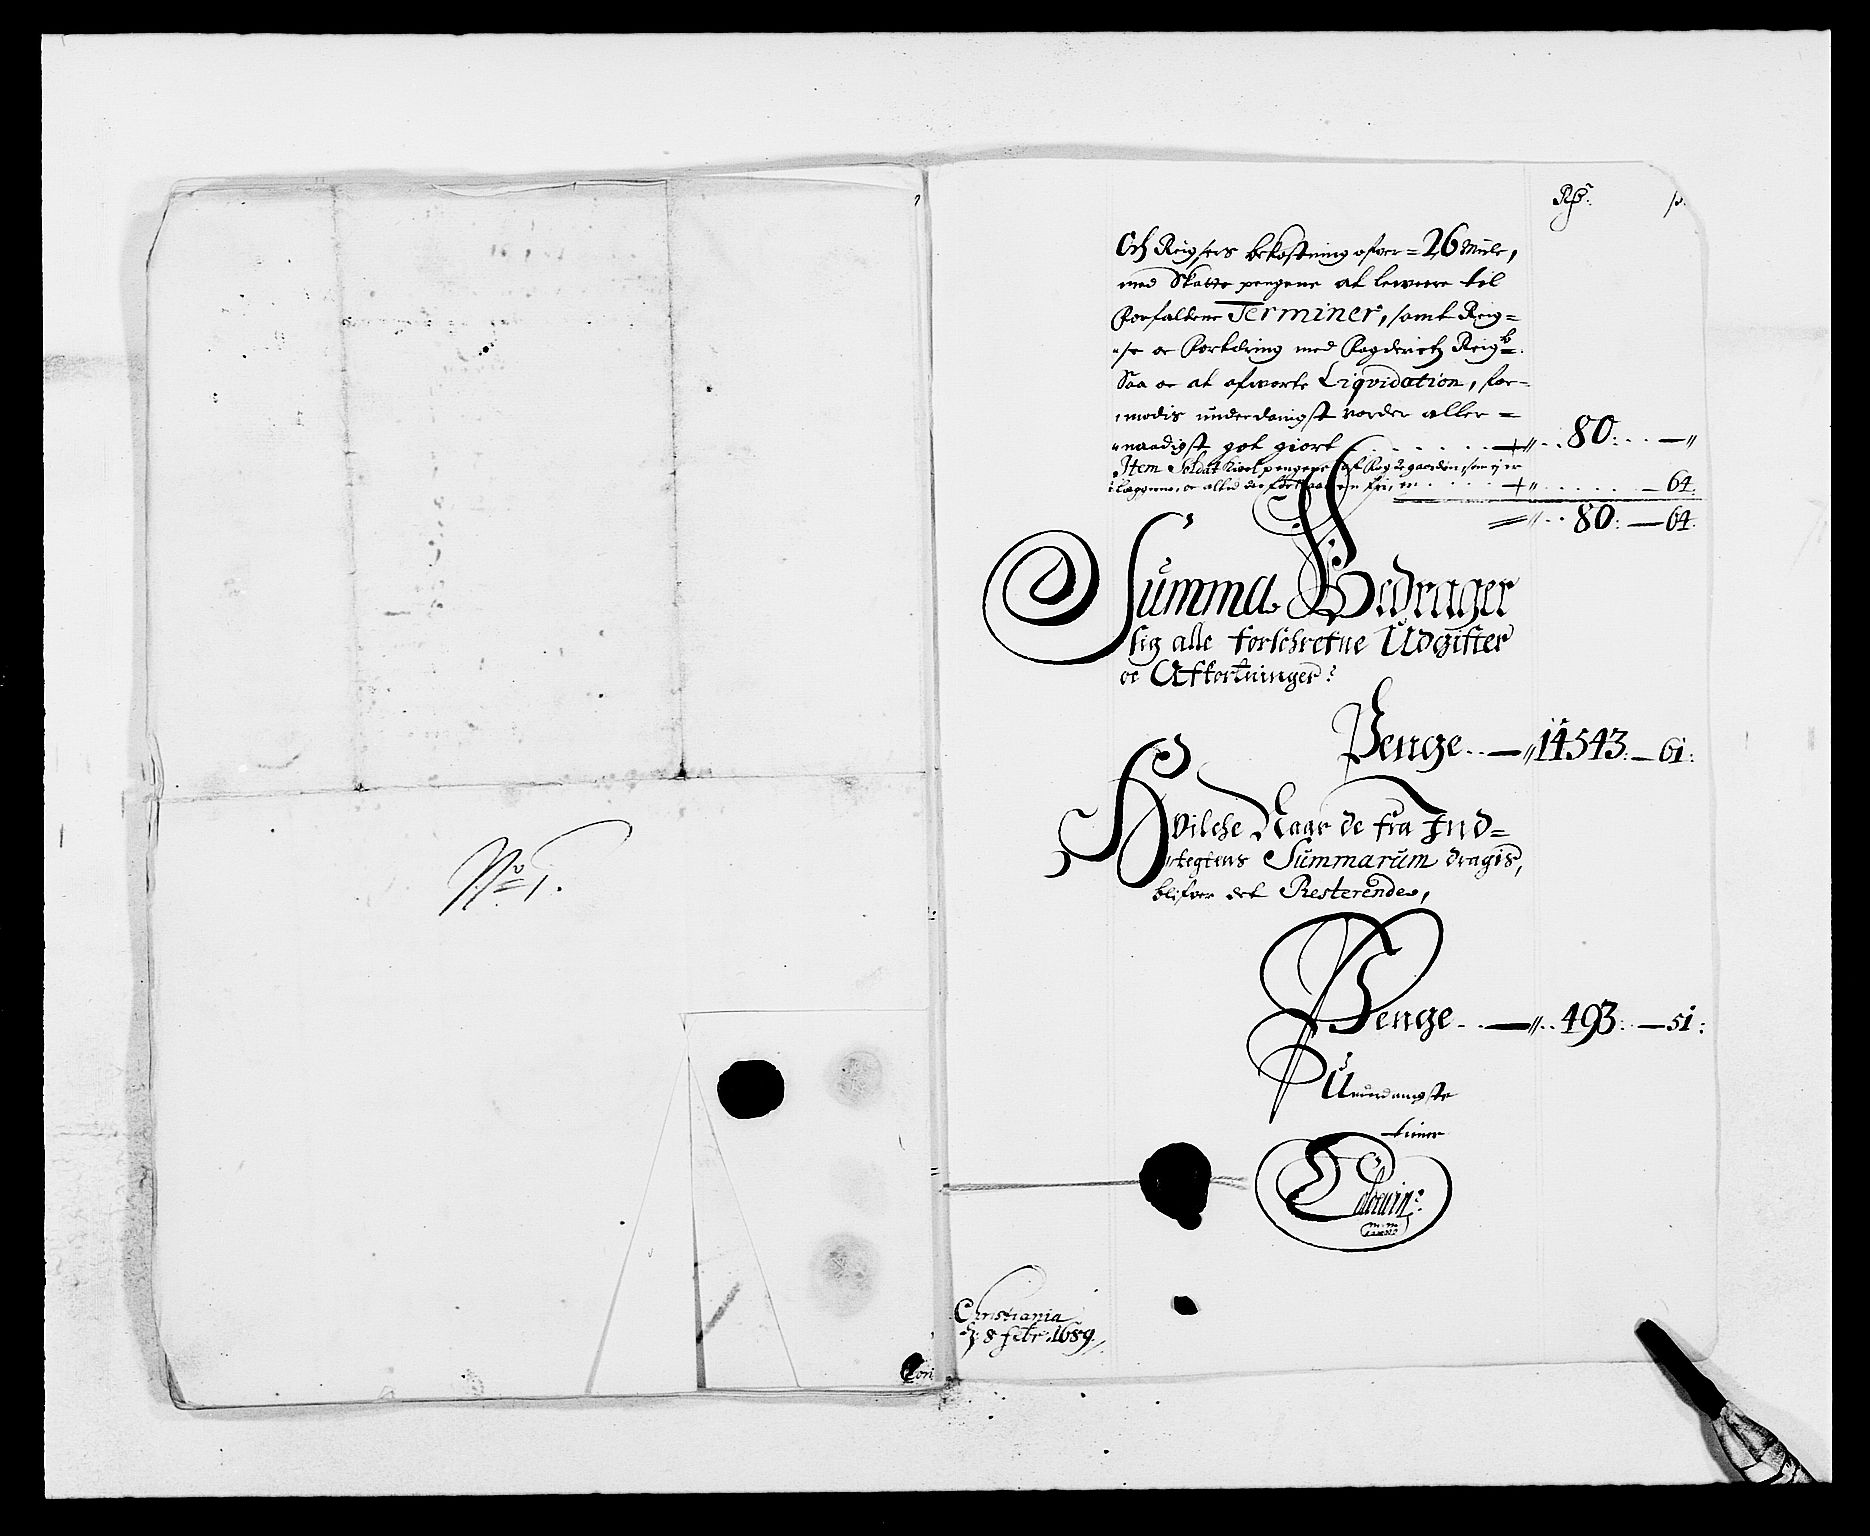 No 1.
Rdr: s:
Och Reigsers bekostning ofver = 26 Miile,
med Skatte pengene at levere til
Forfaldene Terminer, samt Reig=
se oc Fortæring med Fogderietz Reigsb:
Saa oc at afværte Liqvidation, for-
modis underdanigst vorder aller =
naadigst got giort - - - - + // .. 80: .. — //
Item Soldat
oc altid fri, + // . . . . . — 64:
= // .. 80: — 64:
Summa Bedrager
sig alle forschrefne Udgifter
oc Afkortninger:
Penge .. — // 14543: — 61:
Hvilche Naar de fra Ind=
tegtens Summarum dragis,
blifver det Resterende,
Penge .. — // .. 493: — 51:
Underdanigste
tiener
mm
Christiania
d: 8 febr: 1689.